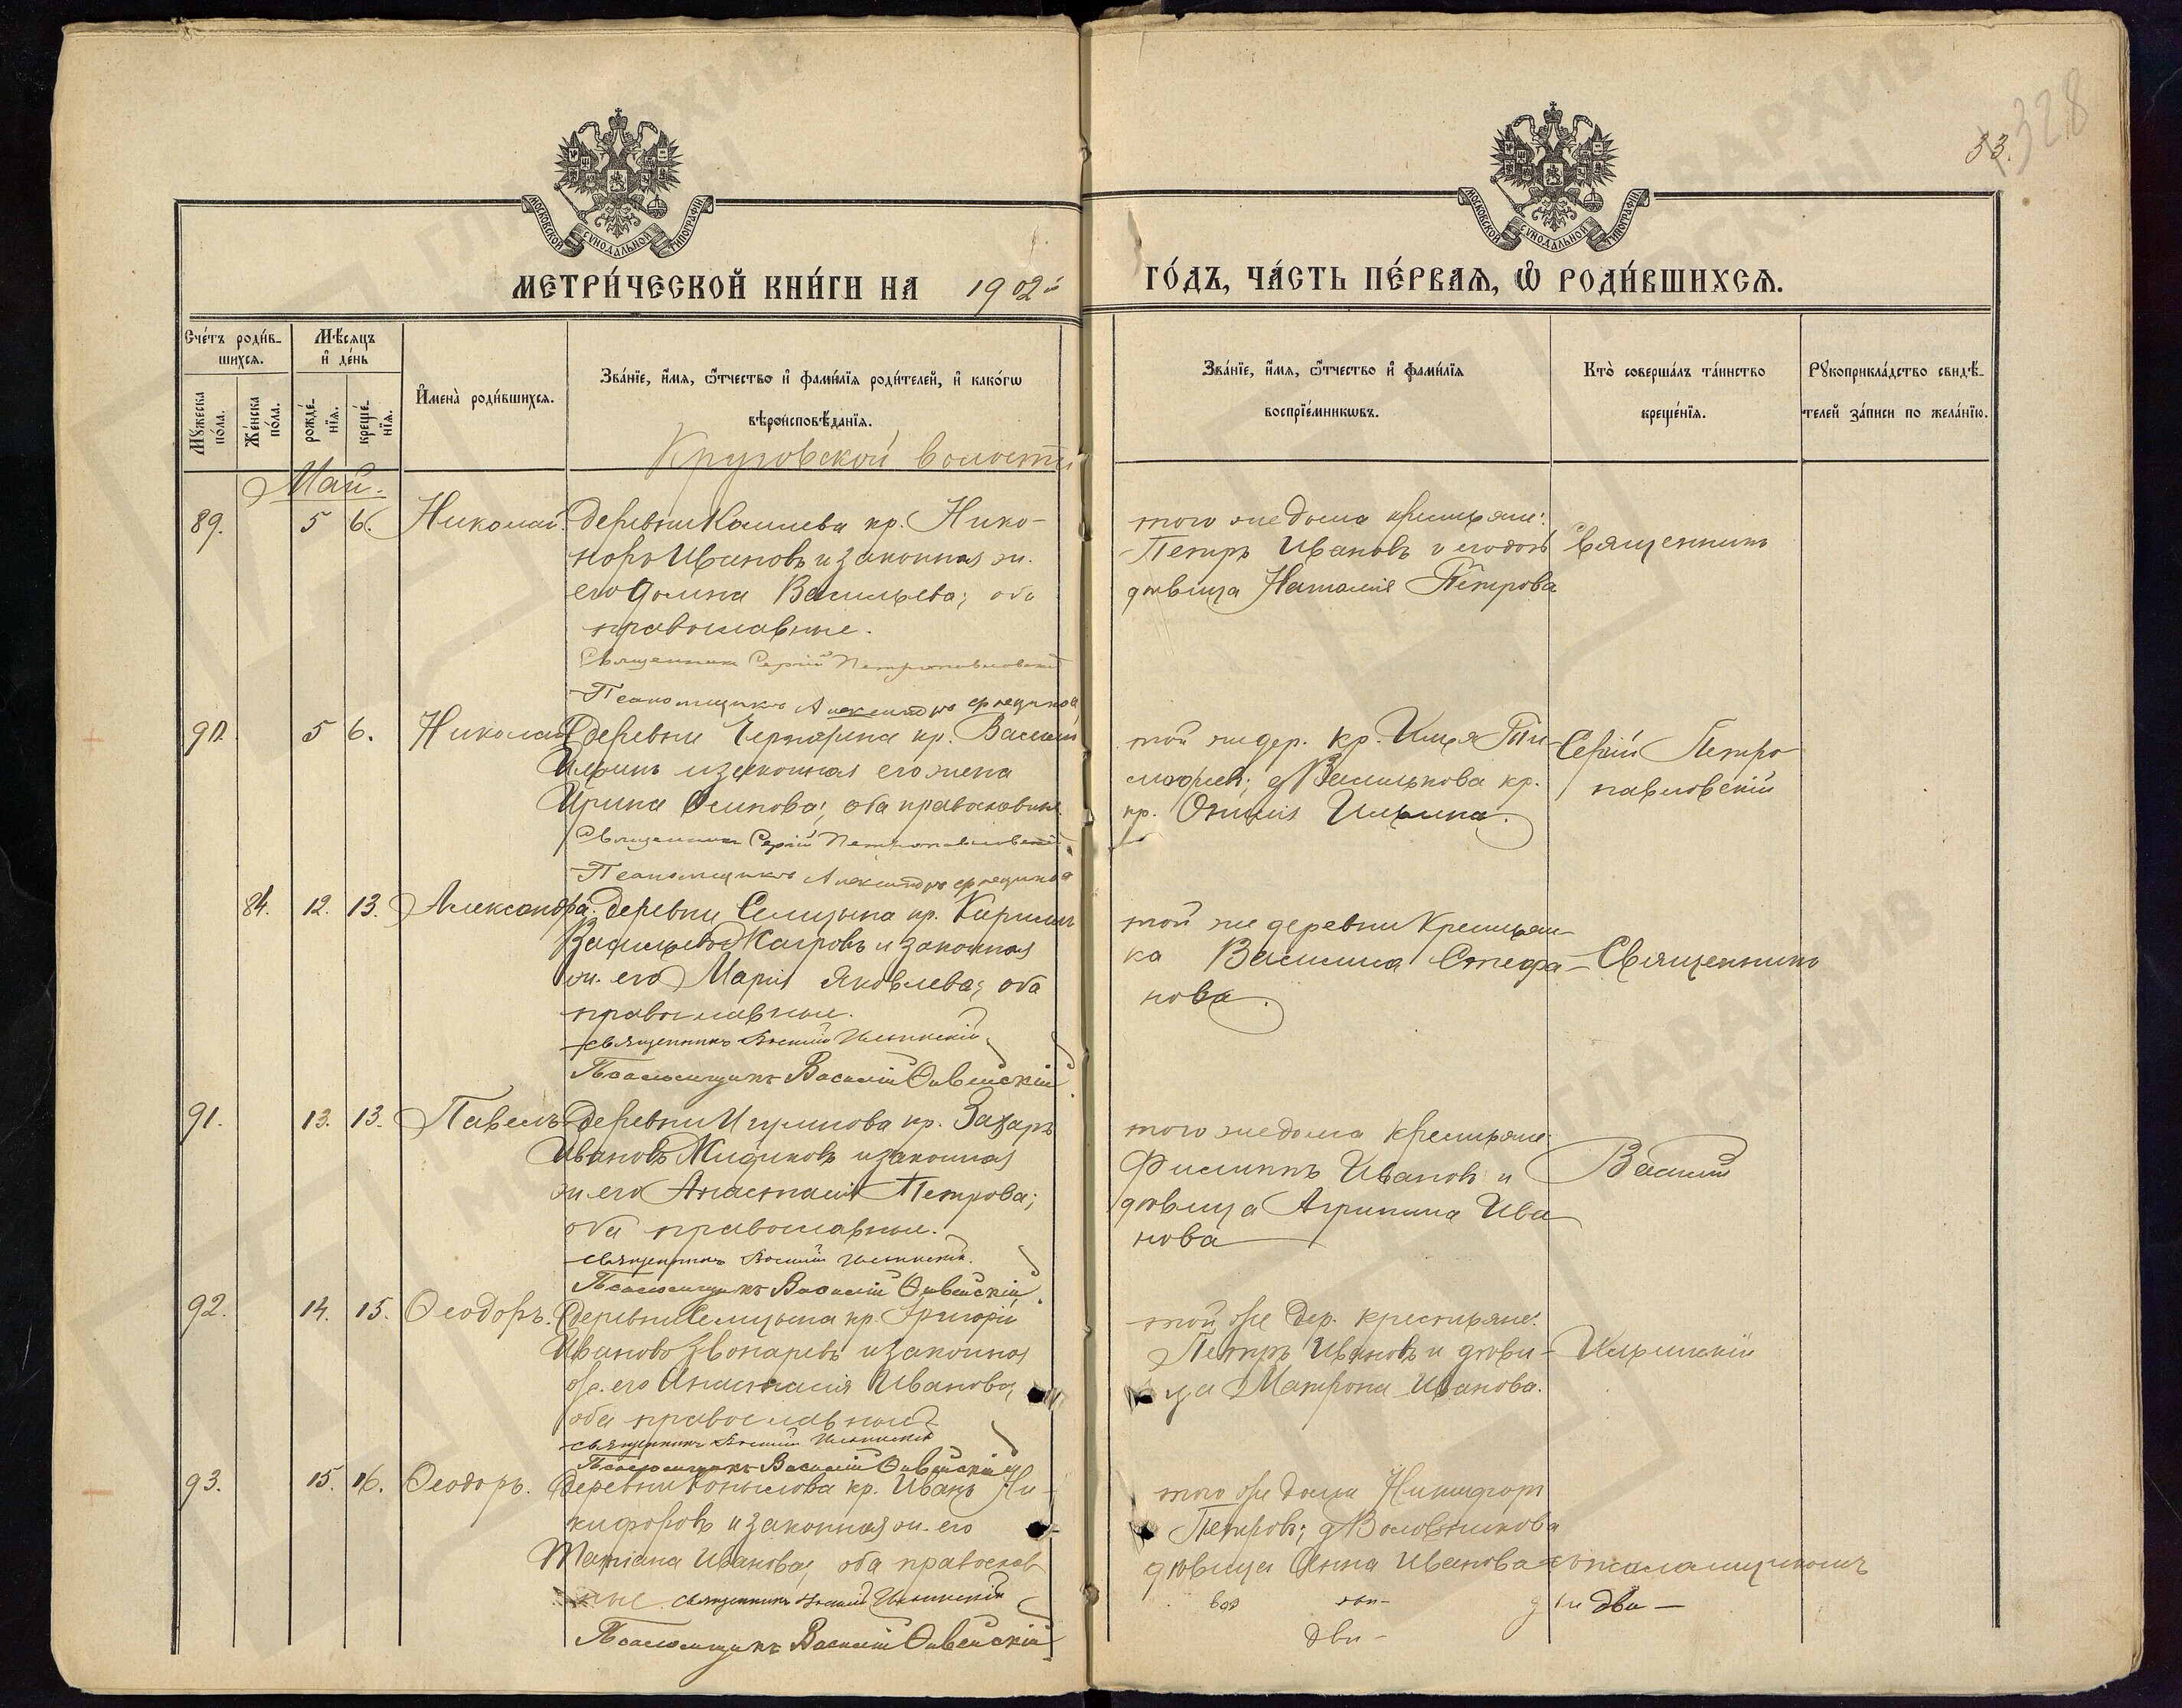 33.
328
МОСКОВСКОЙ СѴНОДАЛЬНОЙ ТИПОГРАФІИ
МОСКОВСКОЙ СѴНОДАЛЬНОЙ ТИПОГРАФІИ
МЕТРИ́ЧЕСКОЙ КНИ́ГИ НА 1902й
ГО́ДЪ, ЧА́СТЬ ПЕ́РВАѦ, Ѽ РОДИ́ВШИХСѦ.
Сче́тъ роди́в-
шихсѧ.
Мꙋ́жеска по́ла.
Же́нска по́ла.
Мѣ́сѧцъ
и҆ де́нь
рожде́-нїѧ.
креще́-нїѧ.
И҆мена̀ роди́вшихсѧ.
Зва́нїе, и҆́мѧ, ѻ҆́тчество и҆ фами́лїѧ роди́телей, и҆ како́гѡ
вѣроисповѣ́данїѧ.
Зва́нїе, и҆́мѧ, ѻ҆́тчество и҆ фами́лїѧ
воспрїе́мникѡвъ.
Кто̀ соверша́лъ та́инство
креще́нїѧ.
Рꙋкоприкла́дство свидѣ́-
телей за́писи по жела́нїю.
Круговской волости
Май.
89. 5 6. Николай. Деревни кр. Нико-
норъ Ивановъ и законная ж.
его Домна Васильева; оба
православные.
Священникъ Сергій Петропавловскій
Псаломщикъ Александръ
того же дома крестьяне:
Петръ Ивановъ и его дочь
дѣвица Наталія Петрова
Священникъ
90. 5 6. Николай Деревни кр. Василій
Ильинъ и законная его жена
Ирина Осипова; оба православные.
Священникъ Сергій Петропавловскій
Псаломщикъ Александръ
той же дер. кр. Илья Ти-
мофеев; д. Василькова кр.
кр. Ильина.
Сергій Петро
павловскій
84. 12. 13. Александра. Деревни Селицына кр. Кириллъ
Васильевъ и законная
ж. его Марія Яковлева; оба
православные.
Священникъ Василій Ильинскій
Псаломщикъ Василій Ѳивейскій
той же деревни крестьян-
ка Василиса Стефа-
нова.
Священникъ
91. 13. 13. Павелъ Деревни Игумнова кр. Захаръ
Ивановъ Жидиковъ и законная
ж. его Анастасія Петрова;
оба православные.
Священникъ Василій Ильинскій.
Псаломщикъ Василій Ѳивейскій
того же дома крестьяне:
Филиппъ Ивановъ и
дѣвица Агрипина Ива
нова
Василій
92. 14. 15. Ѳеодоръ. Деревни Селицына кр. Григорій
Ивановъ Звонаревъ и законная
же. его Анастасія Иванова;
оба православные
Священникъ Василій Ильинскій
Псаломщикъ Василій Ѳивейскій
той же дер. крестьяне:
Петръ Ивановъ и дѣви-
ца Матрона Иванова.
Ильинскій
93. 15. 16. Ѳеодоръ. Деревни Копылова кр. Иванъ Ни-
кифоровъ и законная ж. его
Татіана Иванова; оба православ
ные. Священникъ Василій Ильинскій
Псаломщикъ Василій Ѳивейскій
того же дома Никифоръ
Петровъ; д.
дѣвица Анна Иванова съ псаломщикомъ
два —
дви —
ГЛАВАРХИВ МОСКВЫ